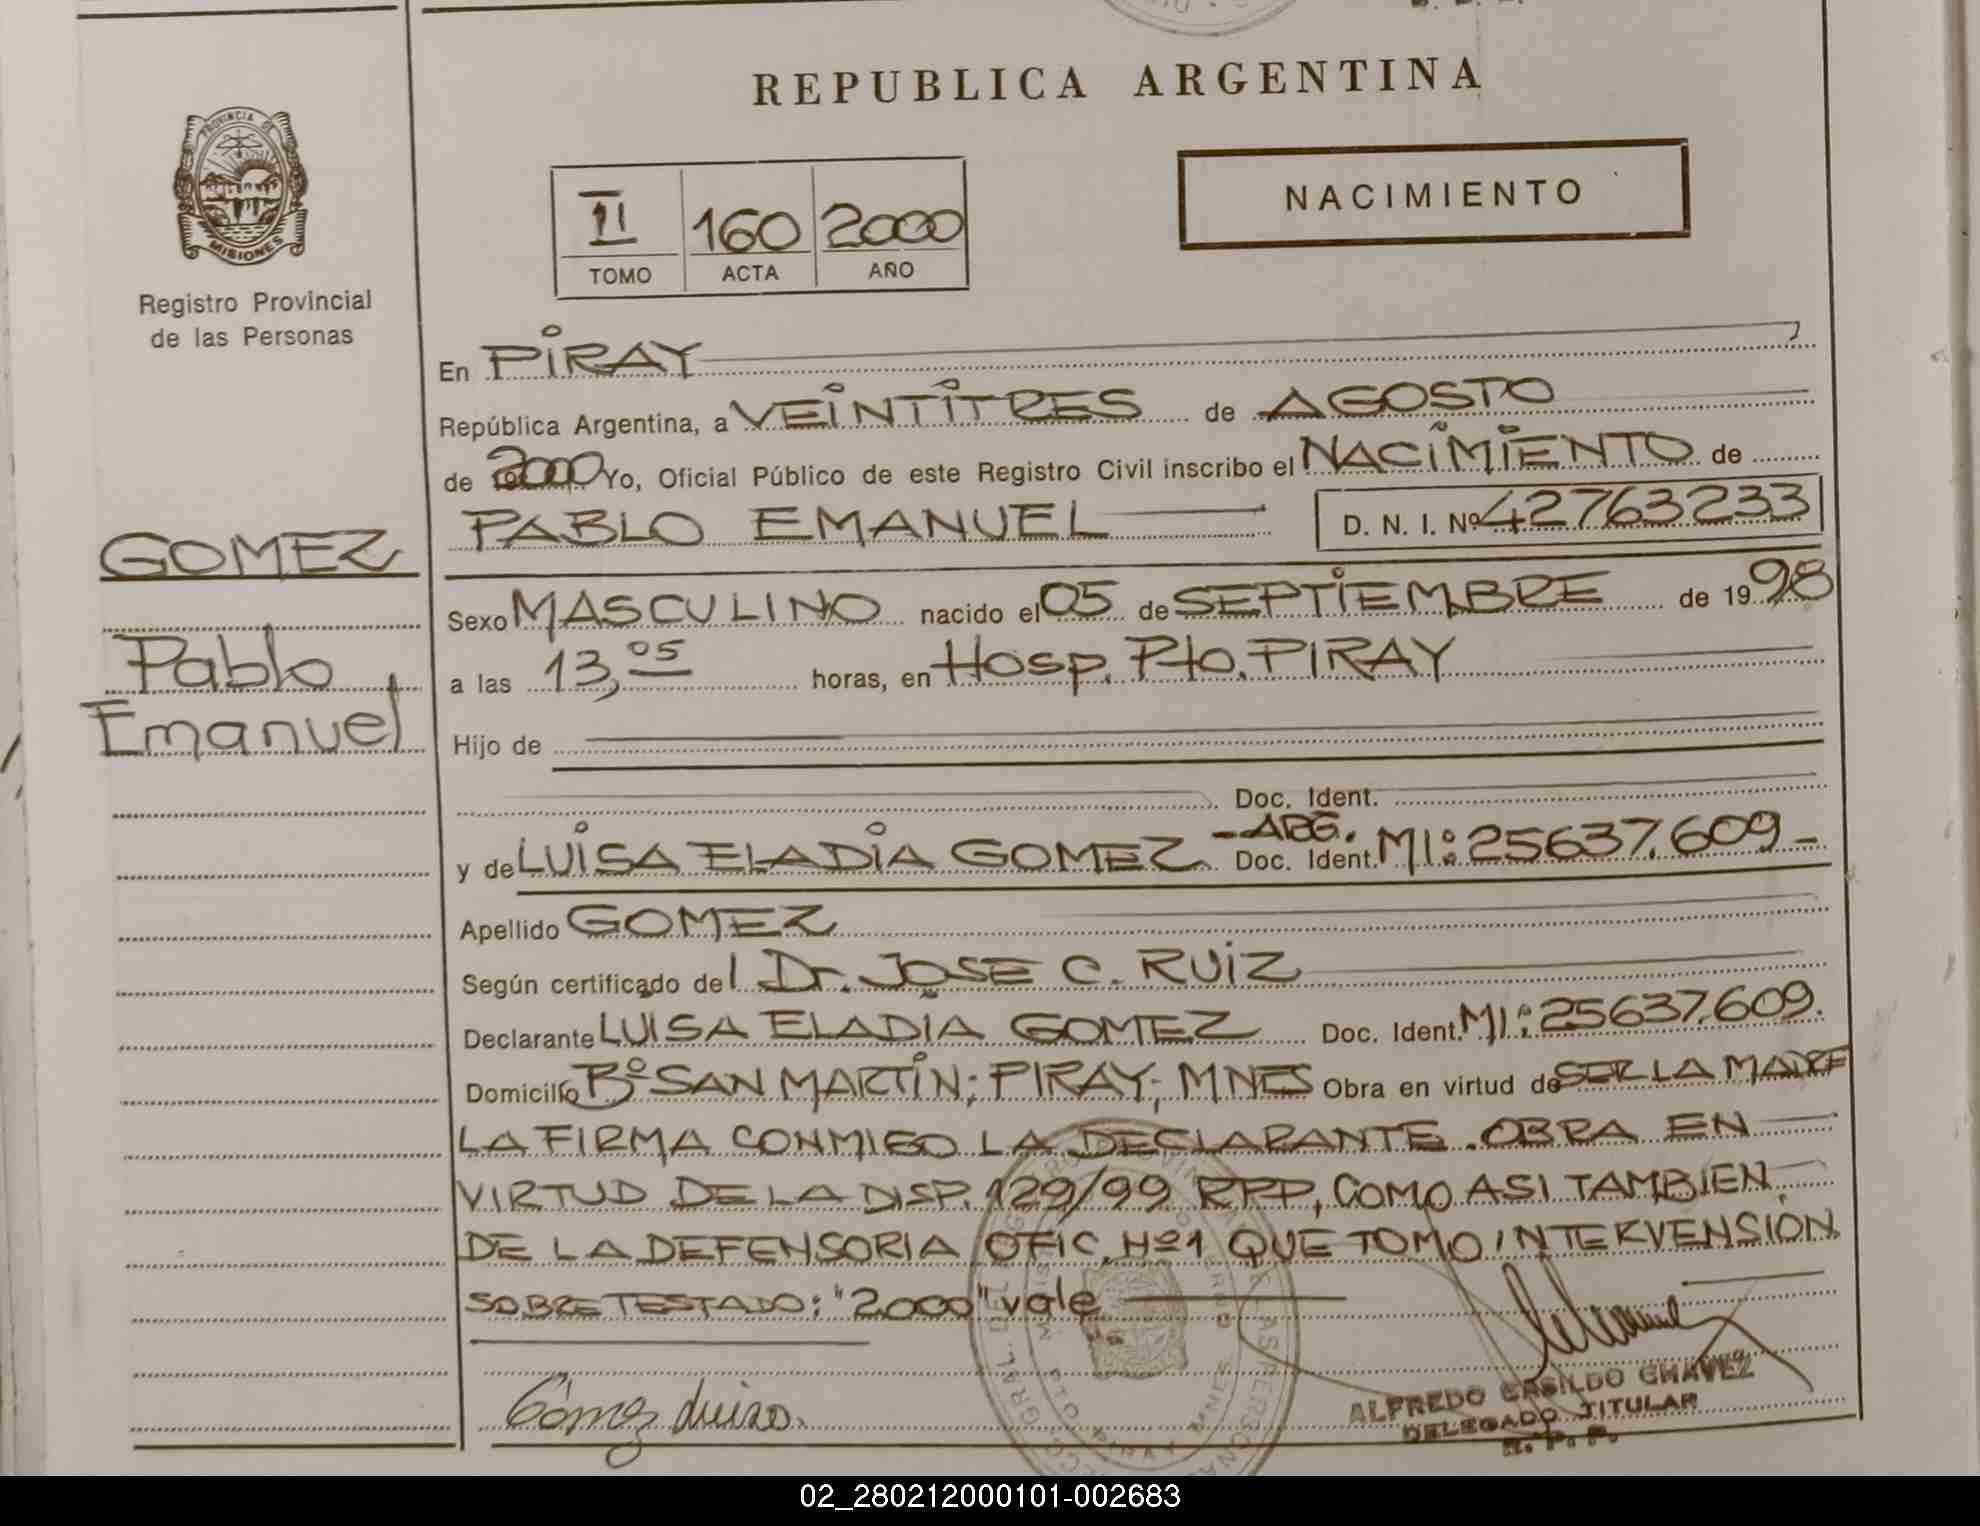 REPUBLICA ARGENTINA
PROVINCIA DE
MISIONES
Registro Provincial
de las Personas
II 160 2000
TOMO ACTA AÑO
NACIMIENTO
GOMEZ
Pablo
Emanuel
En PIRAY
República Argentina, a VEINTITRES de AGOSTO
de 2000 Yo, Oficial Público de este Registro Civil inscribo el NACIMIENTO de
PABLO EMANUEL D. N. I. Nº 42763233
Sexo MASCULINO nacido el 05 de SEPTIEMBRE de 1998
a las 13,05 horas, en Hosp. Pto. PIRAY
Hijo de
Doc. Ident.
y de LUISA ELADIA GOMEZ - ARG. Doc. Ident. MI: 25637.609 -
Apellido GOMEZ
Según certificado del Dr. JOSE C. RUIZ
Declarante LUISA ELADIA GOMEZ Doc. Ident. MI: 25637.609.
Domicilio Bº SAN MARTIN; PIRAY; MNES Obra en virtud de SER LA MADRE
LA FIRMA CONMIGO LA DECLARANTE. OBRA EN
VIRTUD DE LA DISP. 129/99 RPP, COMO ASI TAMBIEN
DE LA DEFENSORIA OFIC. Nº1 QUE TOMO INTERVENSION
SOBRETESTADO: "2000" vale
Gómez Luisa.
ALFREDO CASILDO CHAVEZ
DELEGADO TITULAR
R. P. P.
02_280212000101-002683